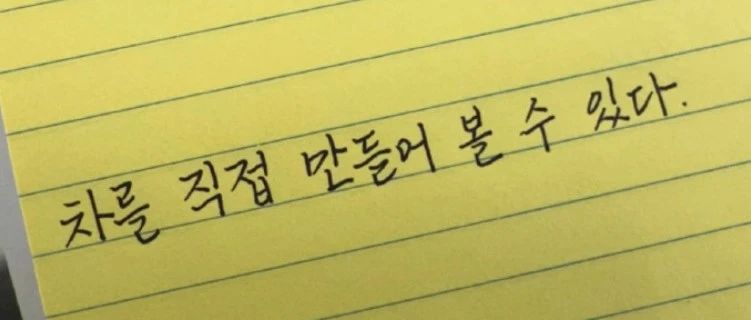 차를 직접 만들어 볼 수 있다.